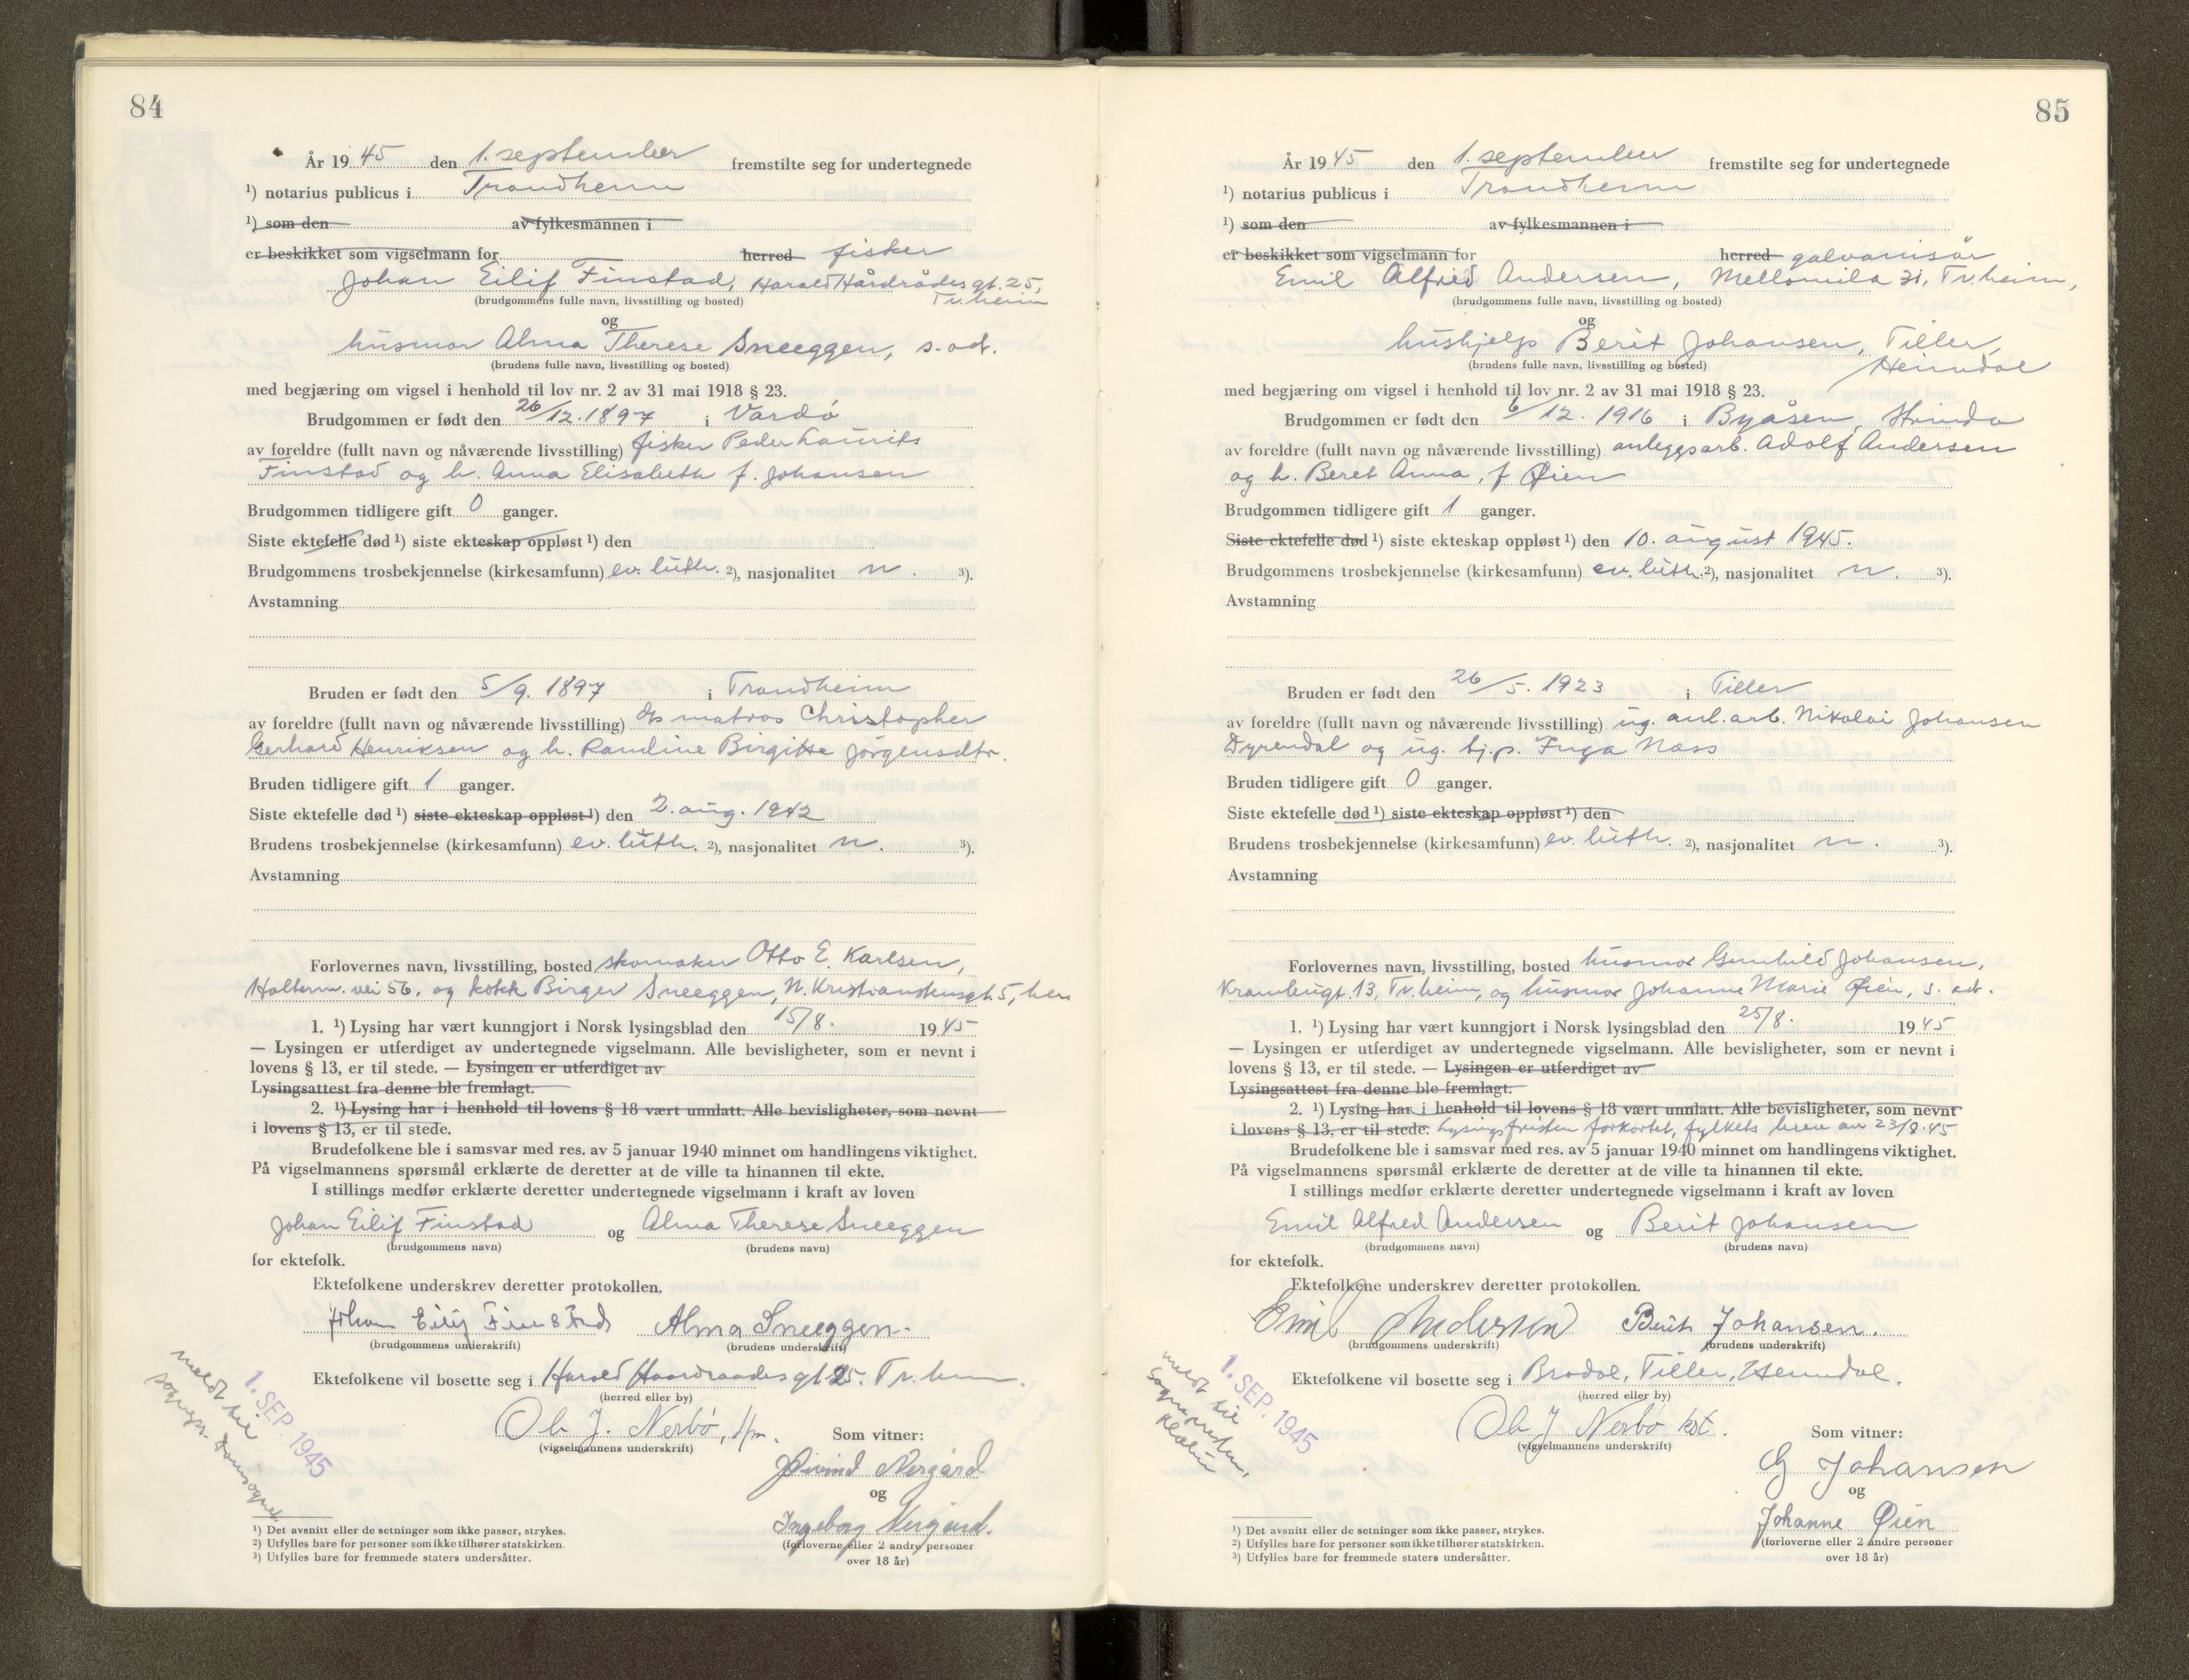 84
År 1945 den 1. september fremstilte seg for undertegnede
¹) notarius publicus i Trondheim
¹) som den av fylkesmannen i
er beskikket som vigselmann for herred fisker
Johan Eilif Finstad, Harald Hårdrådes gt. 25,
Tr.heim
(brudgommens fulle navn, livsstilling og bosted)
og
husmor Alma Therese Sneeggen, s. ad.
(brudens fulle navn, livsstilling og bosted)
med begjæring om vigsel i henhold til lov nr. 2 av 31 mai 1918 § 23.
Brudgommen er født den 26/12. 1897 i Vardö
av foreldre (fullt navn og nåværende livsstilling) fisker Peder Laurits
Finstad og h. Anna Elisabeth f. Johansen
Brudgommen tidligere gift 0 ganger.
Siste ektefelle død ¹) siste ekteskap oppløst ¹) den
Brudgommens trosbekjennelse (kirkesamfunn) ev. luth. ²), nasjonalitet n. ³).
Avstamning
Bruden er født den 5/9. 1897 i Trondheim
av foreldre (fullt navn og nåværende livsstilling) matros Christopher
Gerhard Henriksen og h. Randine Birgitte Jörgensdtr.
Bruden tidligere gift 1 ganger.
Siste ektefelle død ¹) siste ekteskap oppløst ¹) den 2. aug. 1942
Brudens trosbekjennelse (kirkesamfunn) ev. luth. ²), nasjonalitet n. ³).
Avstamning
Forlovernes navn, livsstilling, bosted skomaker Otto E. Karlsen,
Halterm. vei 56, og kokk Birger Sneeggen, N. Kristianstensgt. 5, her
1. ¹) Lysing har vært kunngjort i Norsk lysingsblad den 15/8. 1945
— Lysingen er utferdiget av undertegnede vigselmann. Alle bevisligheter, som er nevnt i
lovens § 13, er til stede. — Lysingen er utferdiget av
Lysingsattest fra denne ble fremlagt.
2. ¹) Lysing har i henhold til lovens § 18 vært unnlatt. Alle bevisligheter, som nevnt
i lovens § 13, er til stede.
Brudefolkene ble i samsvar med res. av 5 januar 1940 minnet om handlingens viktighet.
På vigselmannens spørsmål erklærte de deretter at de ville ta hinannen til ekte.
I stillings medfør erklærte deretter undertegnede vigselmann i kraft av loven
Johan Eilif Finstad og Alma Therese Sneeggen
(brudgommens navn) (brudens navn)
for ektefolk.
Ektefolkene underskrev deretter protokollen.
Johan Eilif Finstad Alma Sneeggen.
(brudgommens underskrift) (brudens underskrift)
Ektefolkene vil bosette seg i Harald Haardraades gt 25. Tr.heim.
(herred eller by)
Ole J. Nerbö,
(vigselmannens underskrift)
Som vitner:
Øivind Nergård
og
Ingeborg Nergård.
(forloverne eller 2 andre personer
over 18 år)
meldt til
sognepr. Domsognet
1. SEP. 1945
¹) Det avsnitt eller de setninger som ikke passer, strykes.
²) Utfylles bare for personer som ikke tilhører statskirken.
³) Utfylles bare for fremmede staters undersåtter.
85
År 1945 den 1. september fremstilte seg for undertegnede
¹) notarius publicus i Trondheim
¹) som den av fylkesmannen i
er beskikket som vigselmann for herred galvanisör
Emil Alfred Andersen, Mellomila 31, Tr.heim,
(brudgommens fulle navn, livsstilling og bosted)
og
hushjelp Berit Johansen, Tiller,
Heimdal
(brudens fulle navn, livsstilling og bosted)
med begjæring om vigsel i henhold til lov nr. 2 av 31 mai 1918 § 23.
Brudgommen er født den 6/12. 1916 i Byåsen, Strinda
av foreldre (fullt navn og nåværende livsstilling) anleggsarb. Adolf Andersen
og h. Beret Anna, f. Øien
Brudgommen tidligere gift 1 ganger.
Siste ektefelle død ¹) siste ekteskap oppløst ¹) den 10. august 1945.
Brudgommens trosbekjennelse (kirkesamfunn) ev. luth. ²), nasjonalitet n. ³).
Avstamning
Bruden er født den 26/5. 1923 i Tiller
av foreldre (fullt navn og nåværende livsstilling) ug. anl. arb. Nikolai Johansen
Dyrendal og ug. hj.p. Inga Næss
Bruden tidligere gift 0 ganger.
Siste ektefelle død ¹) siste ekteskap oppløst ¹) den
Brudens trosbekjennelse (kirkesamfunn) ev. luth. ²), nasjonalitet n. ³).
Avstamning
Forlovernes navn, livsstilling, bosted husmor Gunhild Johansen,
Krambugt. 13, Tr.heim, og husmor Johanne Marie Øien, s. ad.
1. ¹) Lysing har vært kunngjort i Norsk lysingsblad den 25/8. 1945
— Lysingen er utferdiget av undertegnede vigselmann. Alle bevisligheter, som er nevnt i
lovens § 13, er til stede. — Lysingen er utferdiget av
Lysingsattest fra denne ble fremlagt.
2. ¹) Lysing har i henhold til lovens § 18 vært unnlatt. Alle bevisligheter, som nevnt
i lovens § 13, er til stede. Lysingsfristen forkortet, fylkets brev av 23/8.45
Brudefolkene ble i samsvar med res. av 5 januar 1940 minnet om handlingens viktighet.
På vigselmannens spørsmål erklærte de deretter at de ville ta hinannen til ekte.
I stillings medfør erklærte deretter undertegnede vigselmann i kraft av loven
Emil Alfred Andersen og Berit Johansen
(brudgommens navn) (brudens navn)
for ektefolk.
Ektefolkene underskrev deretter protokollen.
Emil Andersen Berit Johansen.
(brudgommens underskrift) (brudens underskrift)
Ektefolkene vil bosette seg i Brodal, Tiller, Heimdal.
(herred eller by)
Ole J Nerbö kst.
(vigselmannens underskrift)
Som vitner:
G Johansen
og
Johanne Øien
(forloverne eller 2 andre personer
over 18 år)
meldt til
sognepresten,
Klæbu
1. SEP. 1945
¹) Det avsnitt eller de setninger som ikke passer, strykes.
²) Utfylles bare for personer som ikke tilhører statskirken.
³) Utfylles bare for fremmede staters undersåtter.